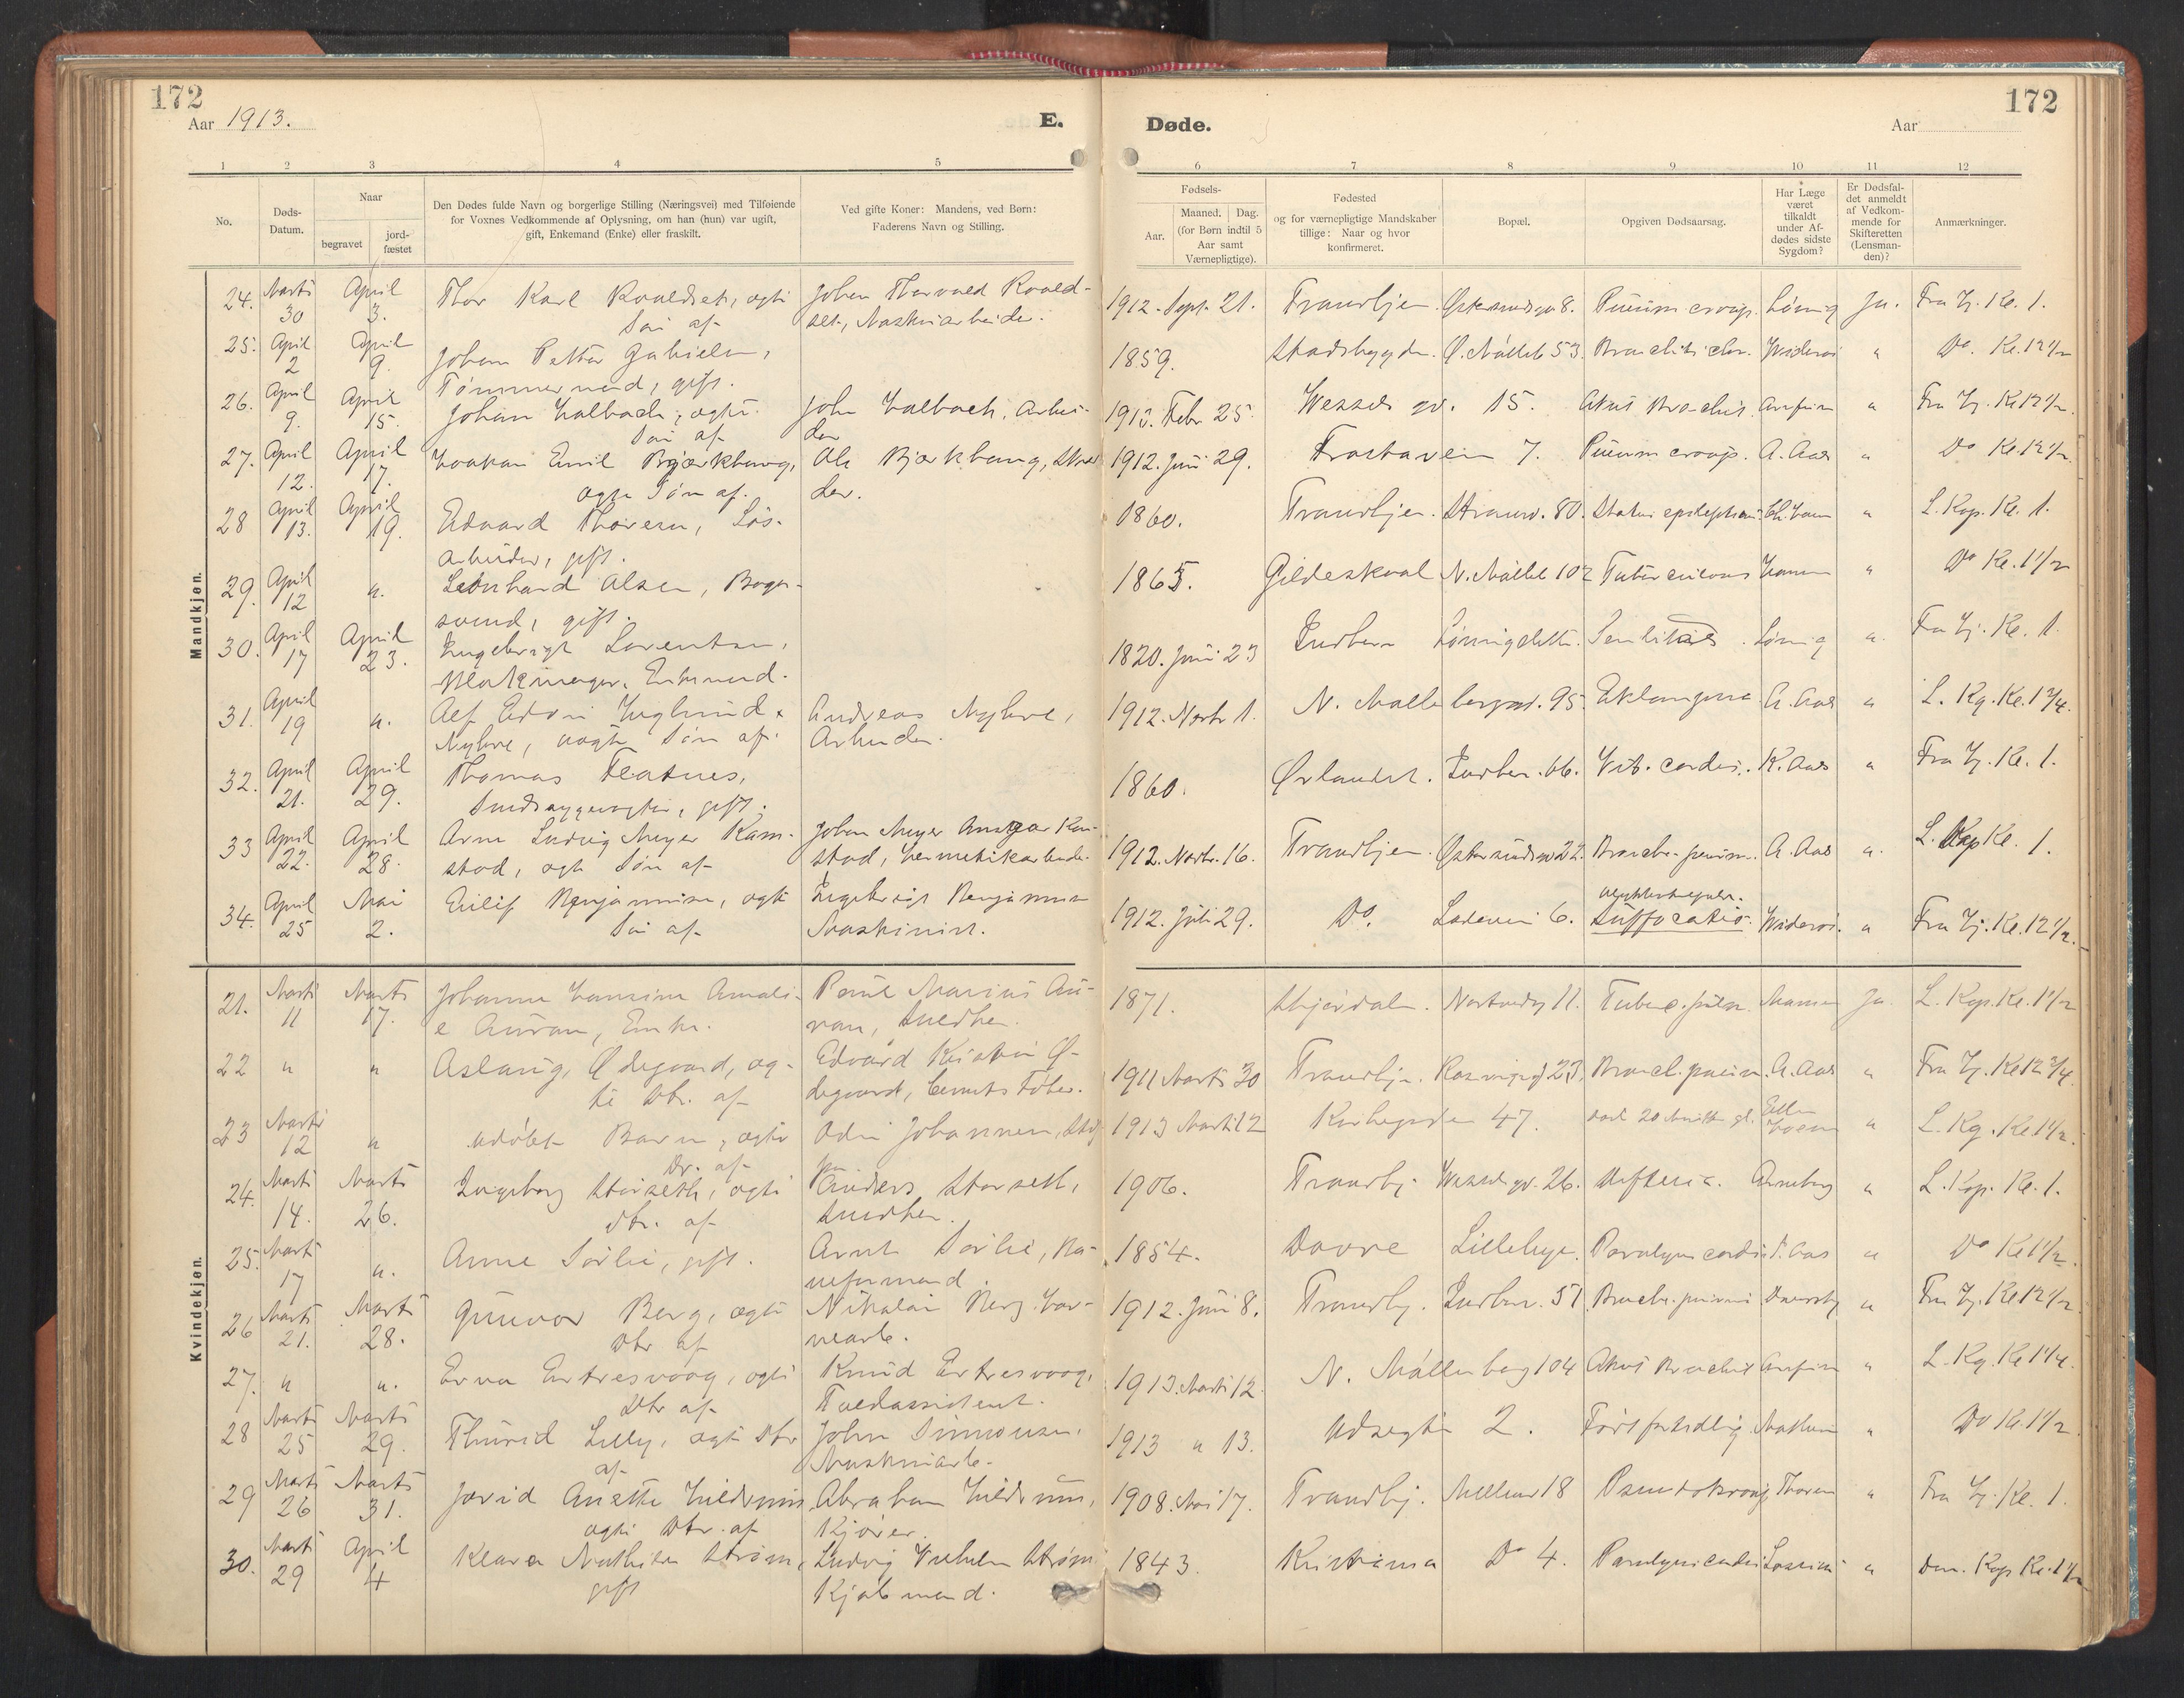 172
Aar 1913.
E.
Døde.
Aar
172
1 2 3 4 5 6 7 8 9 10 11 12
No.
Døds-Datum.
Naar
begravet
jord-fæstet
Den Dødes fulde Navn og borgerlige Stilling (Næringsvei) med Tilføiende
for Voxnes Vedkommende af Oplysning, om han (hun) var ugift,
gift, Enkemand (Enke) eller fraskilt.
Ved gifte Koner: Mandens, ved Børn:
Faderens Navn og Stilling.
Fødsels-
Aar.
Maaned. Dag.
(for Børn indtil 5
Aar samt
Værnepligtige).
Fødested
og for værnepligtige Mandskaber
tillige: Naar og hvor
konfirmeret.
Bopæl.
Opgiven Dødsaarsag.
Har Læge
været
tilkaldt
under Af-
dødes sidste
Sygdom?
Er Dødsfal-
det anmeldt
af Vedkom-
mende for
Skifteretten
(Lensman-
den)?
Anmærkninger.
Mandkjøn.
24. Marts 30 April 3. Thor Karl Roaldset, ægte Søn af Johan Thorvald Roald-set, Maskinarbeider. 1912. Sept. 21. Trondhjem. Østersundsgd 8. Pneum. croup. Lønvig Ja. Fra Hj. Kl. 1.
25. April 2 April 9. Johan Petter Gabrielsen, Tømmermand, gift. 1859. Stadsbygden. Ø. Mølleb 53. Bronchitis chr. Widerøe " Do. Kl. 12 1/2
26. April 9. April 15. Johan Halbach, ægte Søn af John Halbach, Arbei-der 1913. Febr. 25. Wessels gd. 15. Akut Bronchit. " Fra Hj. Kl 12 1/2.
27. April 12. April 17. Haakon Emil Bjørkhaug, ægte Søn af Ole Bjørkhaug, 1912. Juni 29. Frostaveien 7. Pneum croup. A. Aas " Do Kl. 12 1/2.
28 April 13. April 19. Edvard Thoresen, Løs-arbeider, gift. 1860. Trondhjem. Strandv. 80. Status epileptus " L. Kap. Kl. 1.
29. April 12 " Leonhard Olsen, Bager-svend, gift. 1865. Gildeskaal N. Mølleb 102 Tuberculosis " Do Kl. 1 1/2
30. April 17 April 23. Ingebrigt Lorentsen, Enkemand. 1820. Juni 23 Inderøen Senilitas. Lønvig " Fra Hj. Kl. 1.
31. April 19 " Alf Edvin Haglund Myhre, uægte Søn af Andreas Myhre, Arbeider. 1912. Novbr 1. N. Møllebergsgd. 95. Eklampsia A. Aas " L. Kg. Kl. 1 3/4.
32. April 21. April 29. Thomas Fleatnes, Sindssygevogter, gift. 1860. Ørlandet. 66. Vit. cordis. K. Aas " Fra Hj. Kl. 1.
33 April 22. April 28. Arne Ludvig Meyer Ramstad, ægte Søn af Johan Meyer Ramstad, Hermetikarbeider 1912. Novbr. 16. Trondhjem. Østersundsgd 22. Broncho-pneum. A. Aas " L. Kap Kl. 1.
34. April 25 Mai 2. Eilif Benjaminsen, ægte Søn af Ingebrigt Benjaminsen Maskinist. 1912. Juli 29. Do. Ladeveien 6. Suffocatio. Widerøe. " Fra Hj. Kl. 12 1/2.
Kvindekjøn.
21. Marts 11 Marts 17. Johanne Hansine Amali-e Auran, Enke. Paul Marius Au-ran, Snedker. 1871. Stjørdalen. Tuberc. pulm. Ja. L. Kap. Kl. 1 1/2
22 " " Aslaug Ødegaard, æg-te Dtr. af Edvard Kristian Ø-degaard, Cementstøber. 1911 Marts 30 Trondhj. 23. Bronch. pneum. A. Aas " Fra Hj. Kl 12 3/4.
23 Marts 12 " Udøbt Barn, ægte Dtr. af Odin Johannesen, 1913 Marts 12 Kirkegaden 47. " L. Kg. Kl 1 1/2.
24. Marts 14. Marts 26. Ingeborg Storseth, ægte Dtr. af Anders Storseth, Snedker. 1906. Trondhj. Wessels gd. 26. Difteria. " L. Kap. Kl. 1.
25. Marts 17 " Anne Sørlie, gift. Arnt Sørlie, Ba-neformand. 1854. Dovre Lillebye. Paralysis cordis Aas " Do Kl 1 1/2.
26 Marts 21. Marts 28. Gunvor Berg, ægte Dtr af Nikolai Berg, 1912. Juni 8. Trondhj. 51 Broncho-pneumoni " Fra Hj. Kl 12 1/2.
27. " " Erna Ertresvoog, ægte Dtr af Knud Ertresvoog, Toldassistent. 1913. Marts 12. N. Møllenberg 104 Akut Bronchit " L. Kg. Kl 1 1/4.
28 Marts 25 Marts 29. Thurid Lilly, ægte Dtr af John Simonsen, Maskinarb. 1913 " 13. Udsigten 2. Født fortidlig " Do Kl. 1 1/2
29 Marts 26 Marts 31. Jorid Anette Hildrum ægte Dtr. af Abraham Hildrum, Kjører. 1908. Mai 17. Trondhj. Mellemv 18 Pseudokroup Thoresen " Fra Hj. Kl. 1.
30. Marts 29 April 4 Klara Mathilde Strøm, gift Ludvig Vilhelm Strøm Kjøbmand. 1843. Kristiania Do 4. Paralysis cordis " Kap Kl. 1 1/2